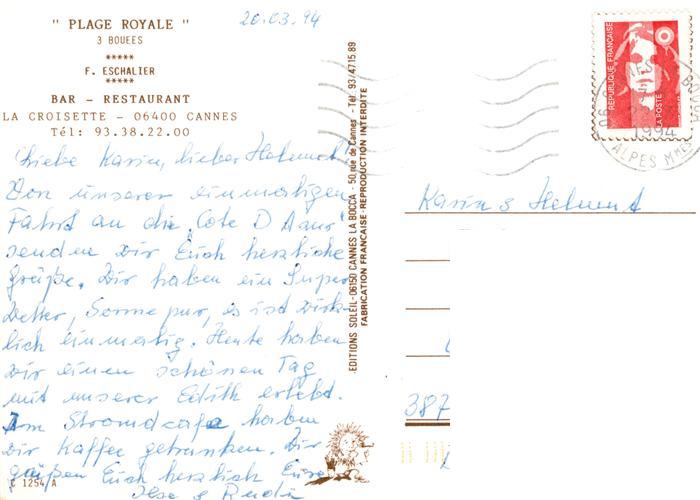 20.03.94
" PLAGE ROYALE "
3 BOUEES
*****
F. ESCHALIER
*****
BAR - RESTAURANT
LA CROISETTE - 06400 CANNES
Tél: 93.38.22.00
Liebe Karin, lieber Helmut!
Von unserer einmaligen
Fahrt an die Cote D Azur
senden wir Euch herzliche
Grüße. Wir haben ein Super
Wetter, Sonne pur, es ist wirk-
lich einmalig. Heute haben
wir einen schönen Tag
mit unserer Edith erlebt.
Im Strandcafe haben
wir Kaffee getrunken. Wir
grüßen Euch herzlich Eure
Ilse & Rudi
C 1254 A
EDITIONS SOLEIL-06150 CANNES LA BOCCA - 50 rue de Cannes - Tél. 93/47.15.89
FABRICATION FRANCAISE-REPRODUCTION INTERDITE
REPUBLIQUE FRANÇAISE
LA POSTE
1994
ALPES MMES
Karin & Helmut
387